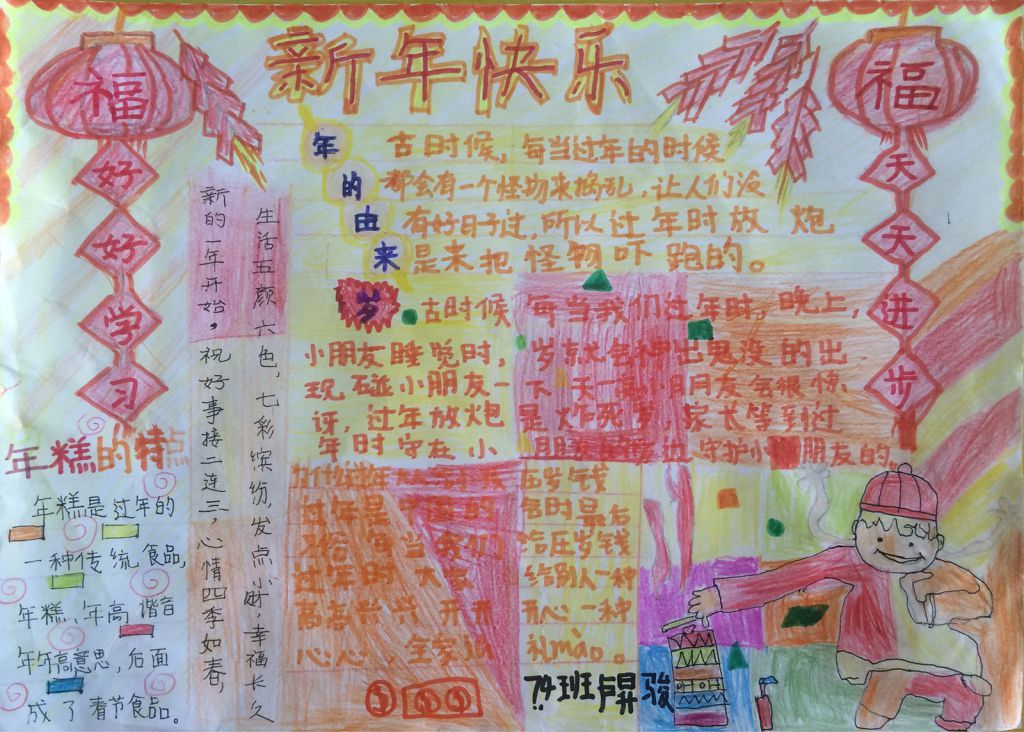 新年快乐
福
好好学习
福
天天进步
年的由来
古时候，每当过年的时候
都会有一个怪物来捣乱，让人们没
有好日子过，所以过年时放炮
是来把怪物吓跑的。
岁
古时候每当我们过年时，晚上，
小朋友睡觉时，岁就会出鬼没的出
现碰小朋友一下天
讶，过年放炮是炸死，家长等到过
年时守在小守护小朋友的。
新的一年开始，祝好事接二连三，心情四季如春，
生活五颜六色，七彩缤纷，发点小财，幸福长久
年糕的特点
年糕是过年的
一种传统食品，
年糕、年高谐音
年年高意思，后面
成了春节食品。
压岁钱
过年是的时最后
每当我们给压岁钱
过年时大家给别人一种
高高兴兴开开开心一种
心心全家礼mào。
74班卢昇骏